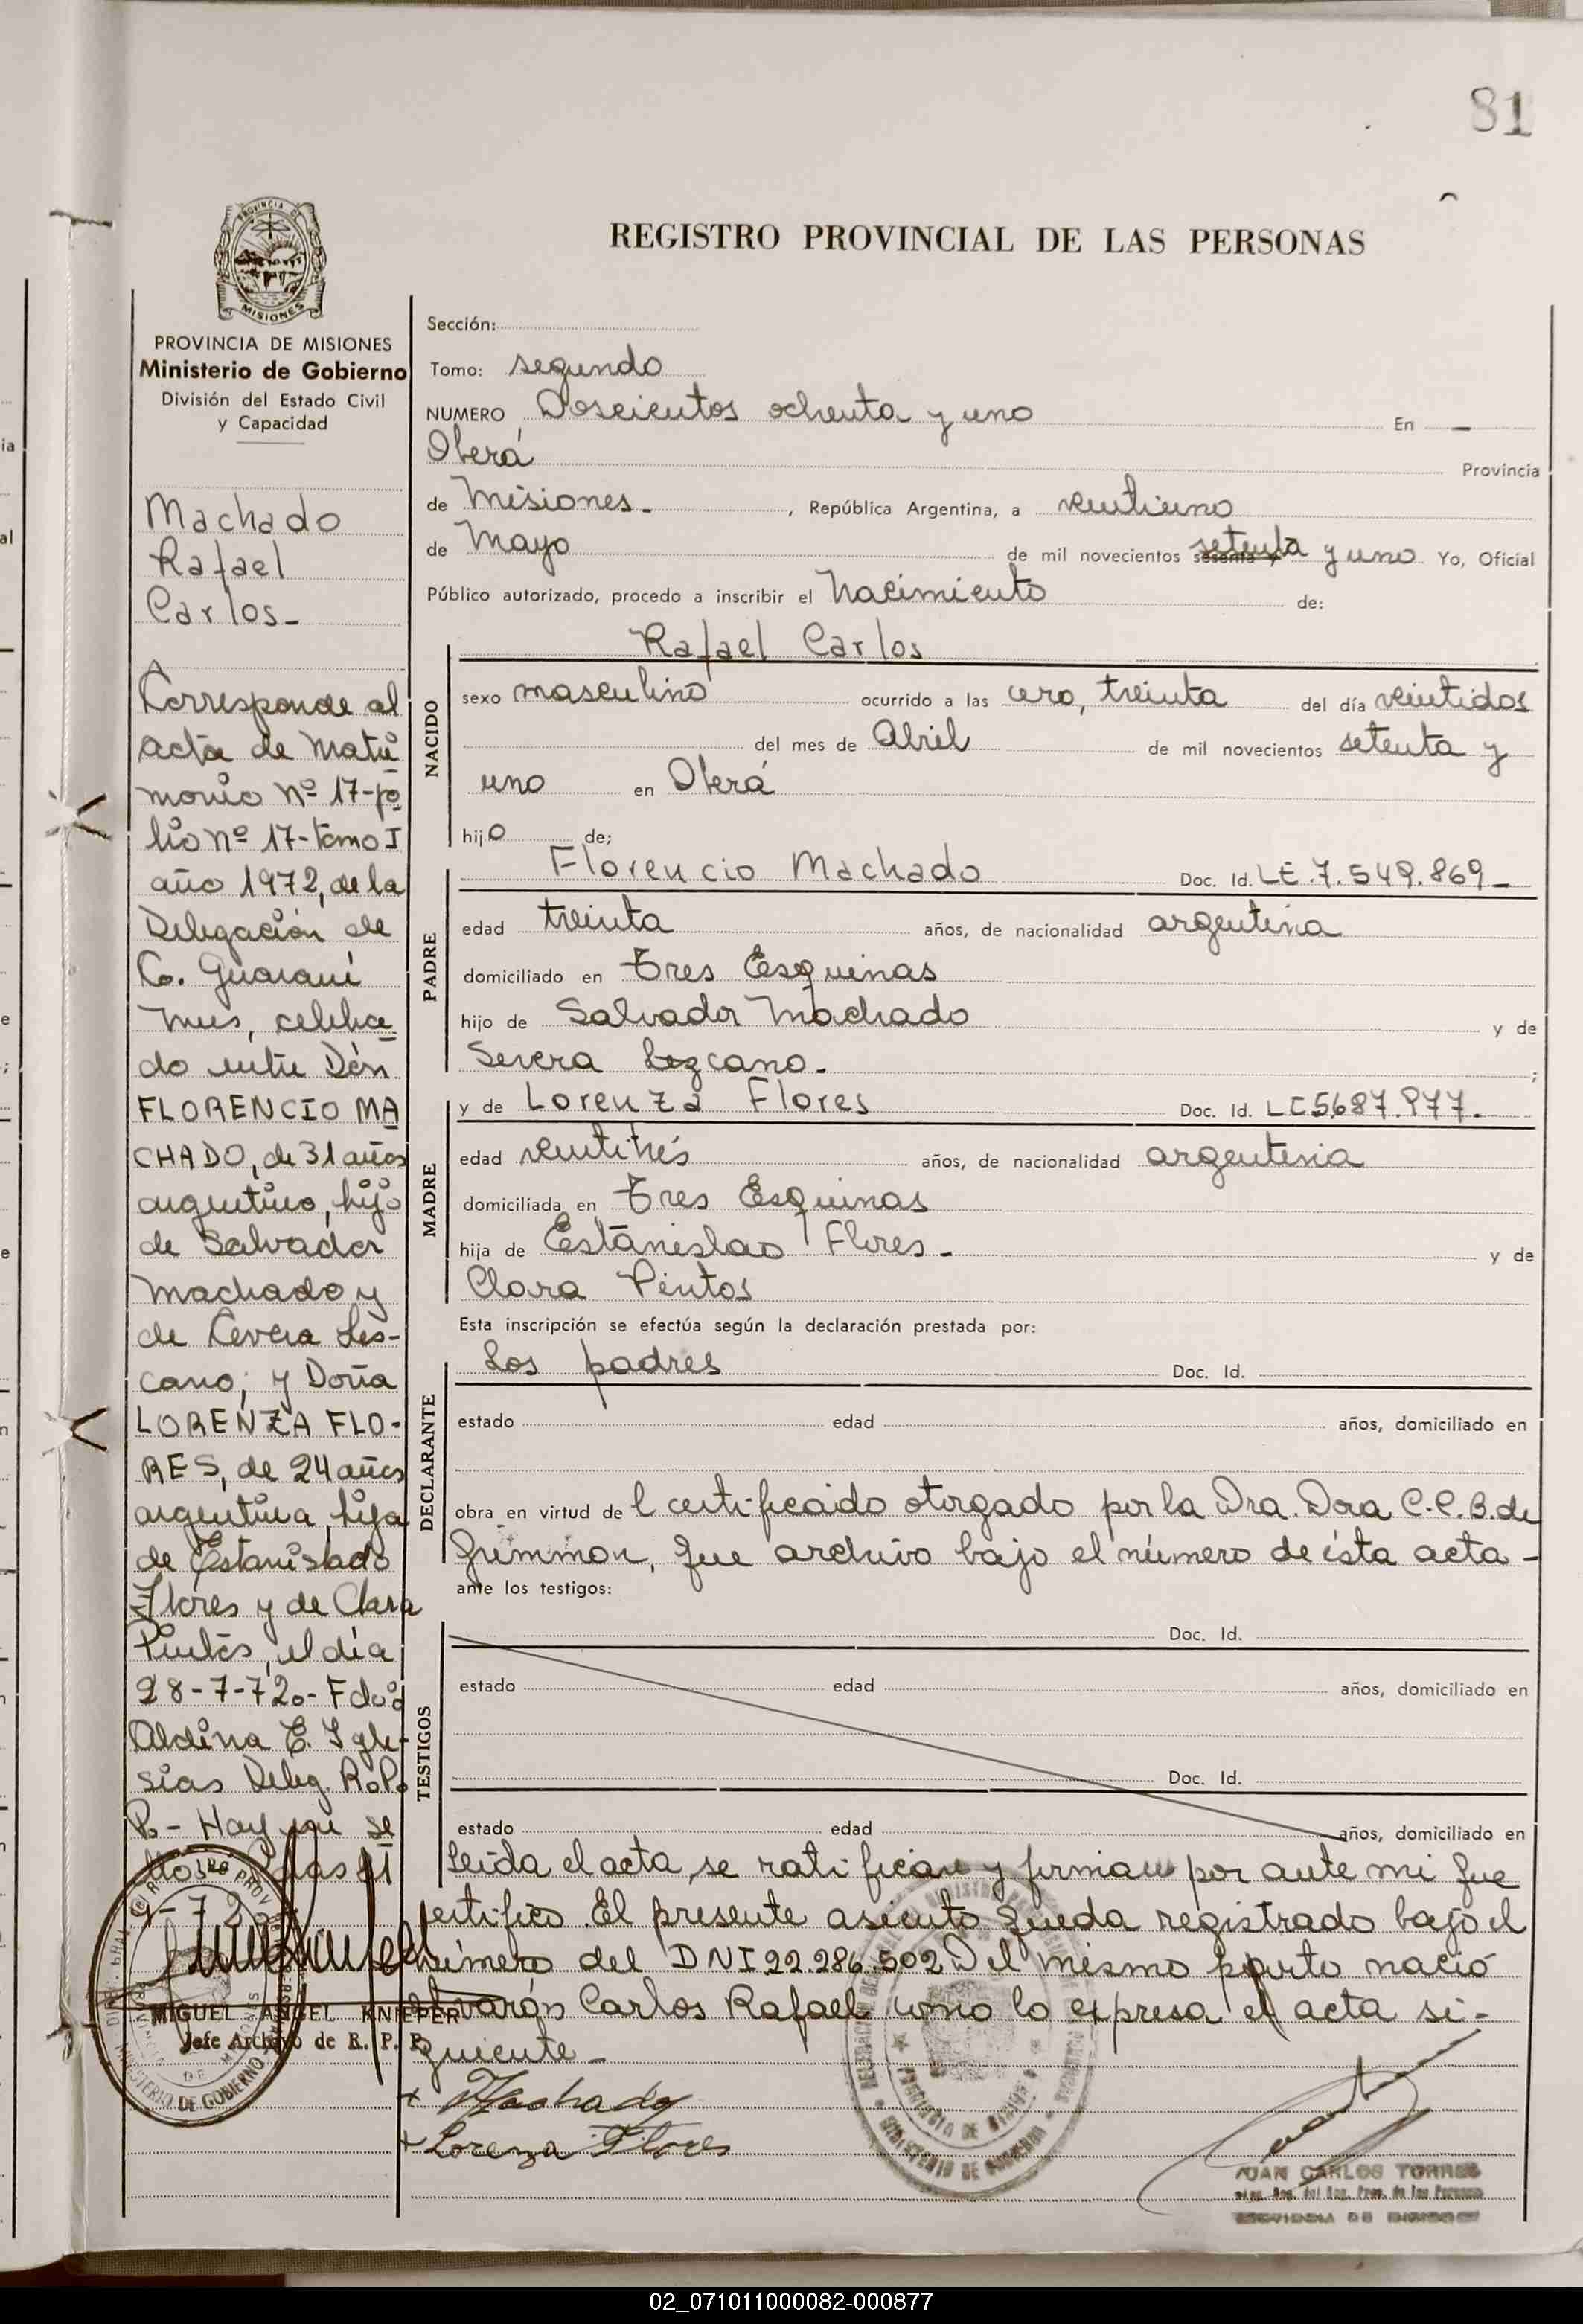 81
REGISTRO PROVINCIAL DE LAS PERSONAS
PROVINCIA DE MISIONES
MISIONES
Ministerio de Gobierno
División del Estado Civil
y Capacidad
Machado
Rafael
Carlos-
Corresponde al
acta de Matri
monio Nº 17-fo
lio Nº 17-tomo I
año 1972, de la
Delegación de
Co. Guaraní
Mnes, celebra
do entre Don
FLORENCIO MA
CHADO, de 31 años
argentino, hijo
de Salvador
Machado y
de Cevera Les-
cano; y Doña
LORENZA FLO-
RES, de 24 años
argentina, hija
de Estanislado
Flores y de Clara
Pintos, el día
28-7-72.- Fdo:
Aldina E. Igle-
sias Deleg. R.P.
P.- Hay un se
llo.
MIGUEL ANGEL KNIEPER
Jefe Archivo de R. P. P.
MINISTERIO DE GOBIERNO
Sección:
Tomo: segundo
NUMERO Doscientos ochenta y uno En -
Oberá Provincia
de Misiones-, República Argentina, a veintiuno
de Mayo de mil novecientos sesenta y setenta y uno Yo, Oficial
Público autorizado, procedo a inscribir el Nacimiento de:
Rafael Carlos
NACIDO
sexo masculino ocurrido a las cero, treinta del día veintidos
del mes de Abril de mil novecientos setenta y
uno en Oberá
hijo de;
PADRE
Florencio Machado Doc. Id. LE.7.549.869-
edad treinta años, de nacionalidad argentina
domiciliado en Tres Esquinas
hijo de Salvador Machado y de
Severa Lezcano. ;
MADRE
y de Lorenza Flores Doc. Id. LC5687.977.
edad veintitrés años, de nacionalidad argentina
domiciliada en Tres Esquinas
hija de Estanislao Flores- y de
Clara Pintos
Esta inscripción se efectúa según la declaración prestada por:
DECLARANTE
Los padres Doc. Id.
estado edad años, domiciliado en
obra en virtud del certificado otorgado por la Dra. Dora C.C.B. de
Grimmon, que archivo bajo el número de ésta acta-
ante los testigos:
TESTIGOS
Doc. Id.
estado edad años, domiciliado en
Doc. Id.
estado edad años, domiciliado en
Leida el acta, se ratifican y firman por ante mi que
certifico. El presente asiento queda registrado bajo el
número del DNI.22.286.502 Del mismo parto nació
el varón Carlos Rafael como lo expresa el acta si-
guiente-
+ Machado
+ Lorenza Flores
MINISTERIO DE GOBIERNO
JUAN CARLOS TORRES
02_071011000082-000877